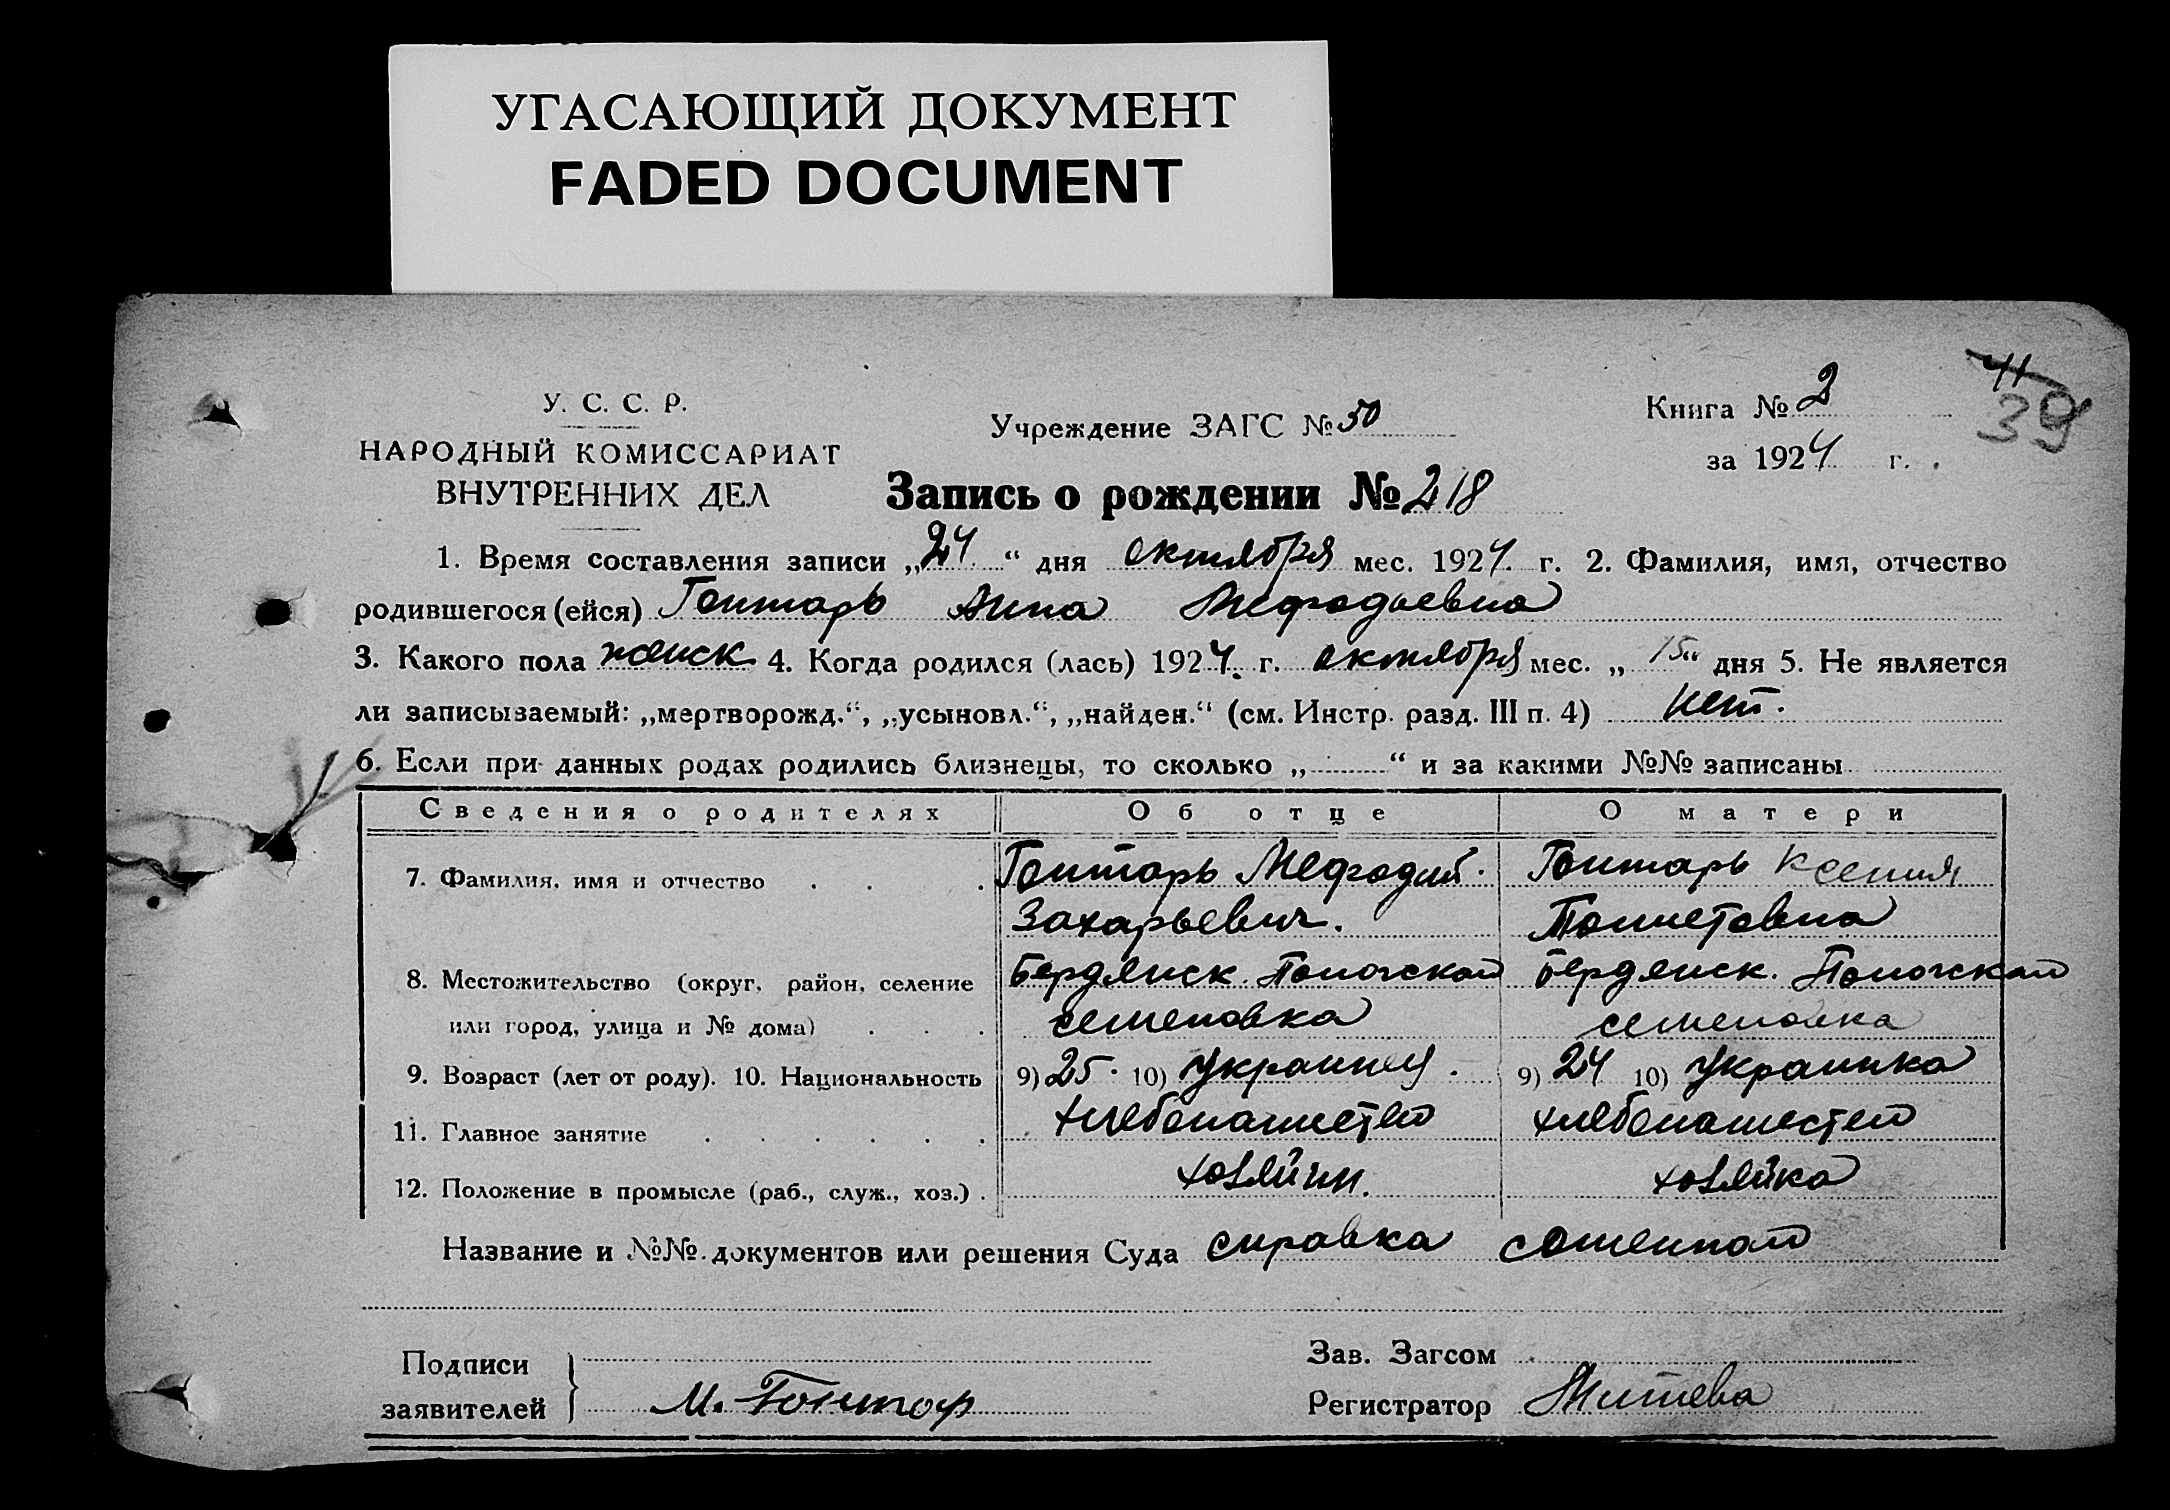 УГАСАЮЩИЙ ДОКУМЕНТ
FADED DOCUMENT
У. С. С. Р.
НАРОДНЫЙ КОМИССАРИАТ
ВНУТРЕННИХ ДЕЛ
Учреждение ЗАГС № 50
Книга № 2
41
39
за 1924 г.
Запись о рождении № 218
1. Время составления записи „24“ дня октября мес. 1924 г. 2. Фамилия, имя, отчество
родившегося (ейся) Гонтарь Анна Мефодьевна
3. Какого пола женск 4. Когда родился (лась) 1924. г. октября мес. „15“ дня 5. Не является
ли записываемый: „мертворожд.“, „усыновл.“, „найден.“ (см. Инстр. разд. III п. 4) нет.
6. Если при данных родах родились близнецы, то сколько „ “ и за какими №№ записаны
Сведения о родителях Об отце О матери
7. Фамилия, имя и отчество Гонтарь Мефодий. Гонтарь Ксения
Захарьевич.
8. Местожительство (округ, район, селение Бердянск. Пологской Бердянск. Пологской
или город, улица и № дома) семеновка семеновка
9. Возраст (лет от роду). 10. Национальность 9) 25. 10) Украинец. 9) 24 10) Украинка
11. Главное занятие хлебопашество хлебопашество
12. Положение в промысле (раб., служ., хоз.) хозяин. хозяйка
Название и №№ документов или решения Суда справка
Подписи
заявителей М. Гонтар
Зав. Загсом
Регистратор